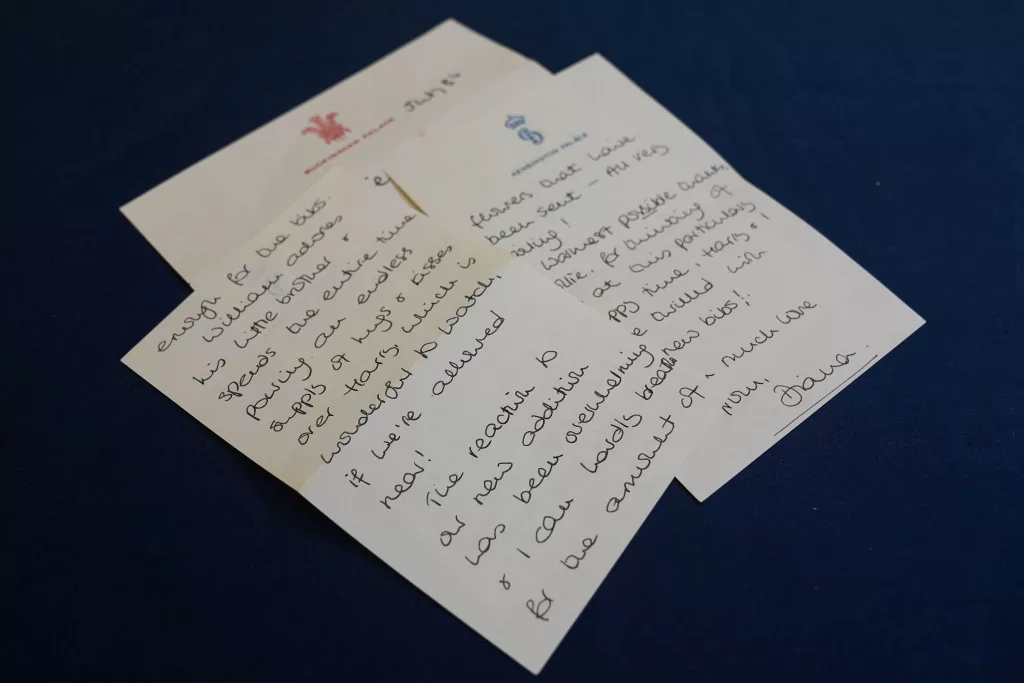 BUCKINGHAM PALACE
July 84
enough for the bibs.
William adores
his little brother &
spends the entire time
pouring an endless
supply of hugs & kisses
over Harry, which is
wonderful to watch,
if we're allowed
near!
The reaction to
our new addition
has been overwhelming
& I can hardly breathe
for the amount of
KENSINGTON PALACE
flowers that have
been sent - All very
warmest possible thanks,
for thinking of
at this particularly
time, Harry &
thrilled with
new bibs!
much love
from,
Diana.